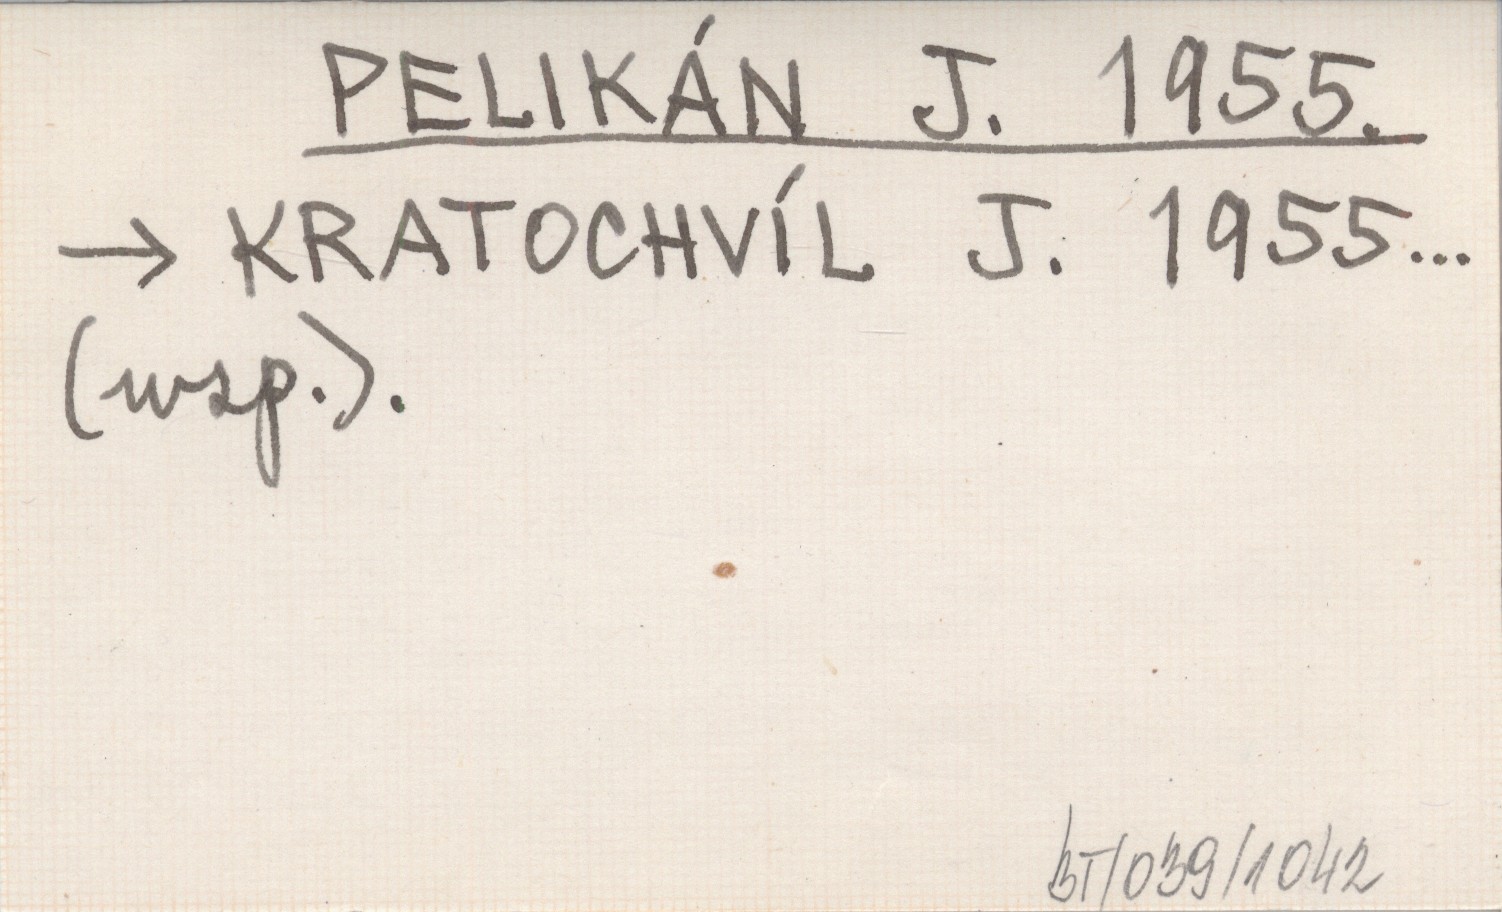 PELIKÁN J. 1955.
→ KRATOCHVÍL J. 1955...
(wsp.).
BT/039/1042